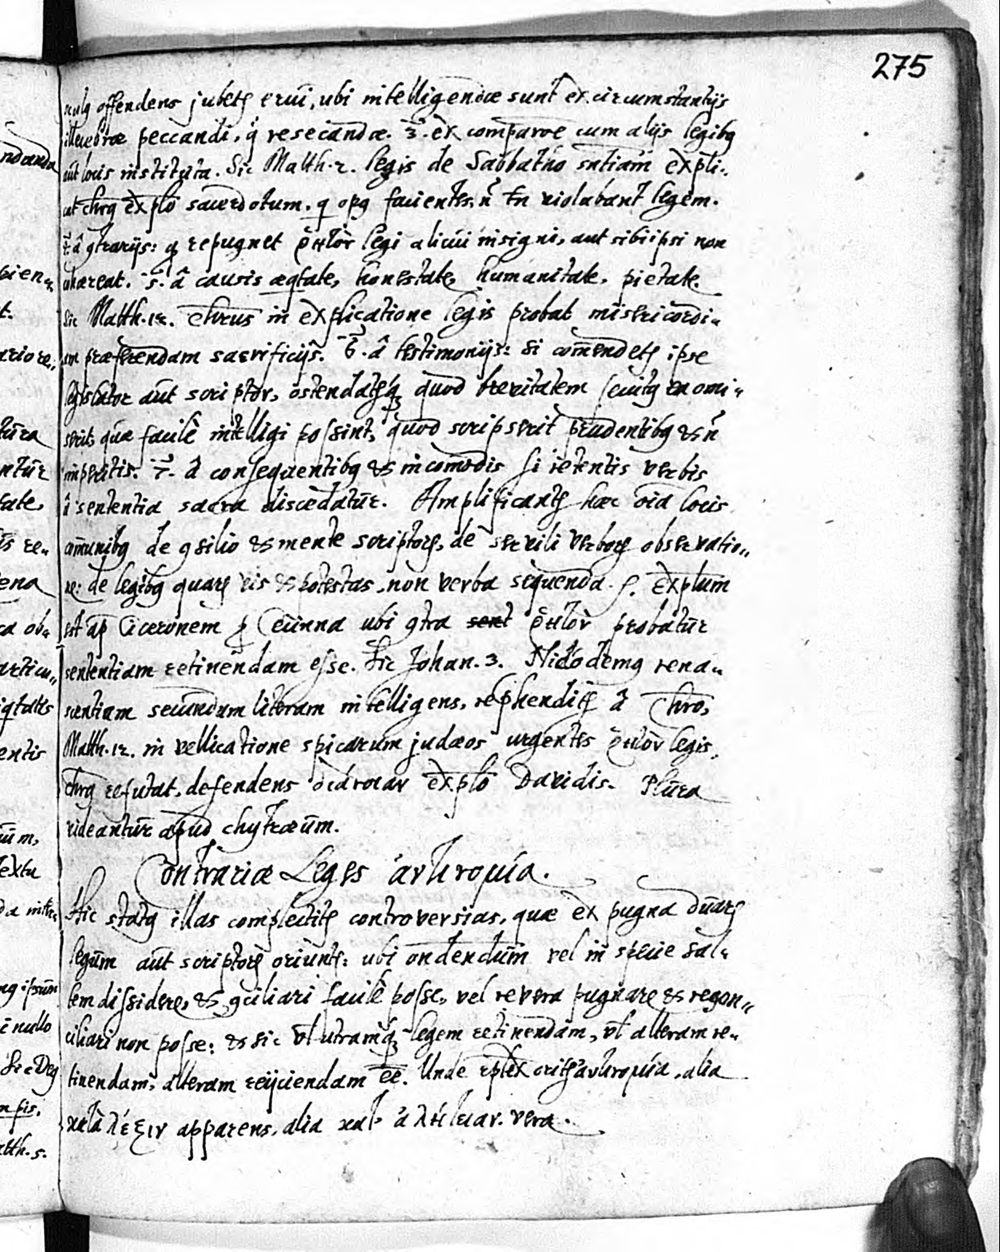 275
offendens jubetʒ erui, ubi intelligendæ sunt ex circumstantijs
illecebræ peccandi, q̃ resecandæ. 3. ex comparoē cum alijs legibq
aūt locis instituta. Sic Matth. 12. legis de Sabbatho sn̄tiam expli-
cat chrq explō sacerdotum, q opq facientes, ñ tn̄ violabant legem.
4. â gtrarijs: repugnet ῥητὸν legi alicui insigni, aut sibiipsi non
cohæreat. 5. â causis æqtate, honestate, humanitate, pietate.
Sic Matth. 12. Christus in explicatione legis probat misericordi-
am præferendam sacrificijs. 6. â testimonijs: si com̄endetʒ ipse
legislator aūt scriptor, ostendatʒq quod brevitatem secutq ea omi-
serit, quæ facilè intelligi possint, quod scripserit prudentibq et ñ
imperitis. 7. â consequentibq et incom̄odis si retentis verbis
â sententia sacra discedatūr. Amplificantʒ hæc oīa locis
com̄unibq de gsilio et mente scriptorʒ, de servili verborʒ observatio-
ne: de legibq quarʒ vis et potestas, non verba sequenda. S. explum
est ap Ciceronem p Cecinna ubi gtra sent ῥητὸν probatūr
sententiam retinendam esse. Sic Johan. 3. Nicodemq rena-
scentiam secundum literam intelligens, reprehenditʒ â Chro,
Matth. 12. in vellicatione spicarum judæos urgentes ῥητὸν legis,
chrq refutat, defendens διάνοιαν explō Davidis. Plura
videantūr apud Chytræum.
Contrariæ Leges ἀντινομία.
Hic statq illas complectitʒ controversias, quæ ex pugna duarʒ
legum aūt scriptorʒ oriuntʒ: ubi ondendum vel in specie sal-
tem dissidere, et gciliari facilè posse, vel revera pugnare et regon-
ciliari non posse: et sic vl utramq legem retinendam, vl alteram re-
tinendam, alteram reijciendam eē. Unde duplex oritʒ ἀντινομία, alia
κατὰ λέξιν apparens, alia κατ' ἀλήθειαν vera.